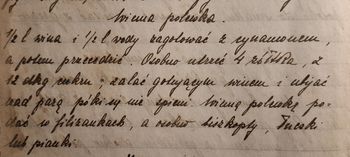 Winna polewka.
1/2 l wina i 1/2 l wody zagotować z cynamonem
a potem przecedzić. Osobno utrzeć 4 żółtka, z
12 dkg cukru; zalać gotującym winem i ubijać
nad parą póki się nie spieni. Winną polewkę po-
dać w filiżankach, a osobno biszkopty,
lub pianki.